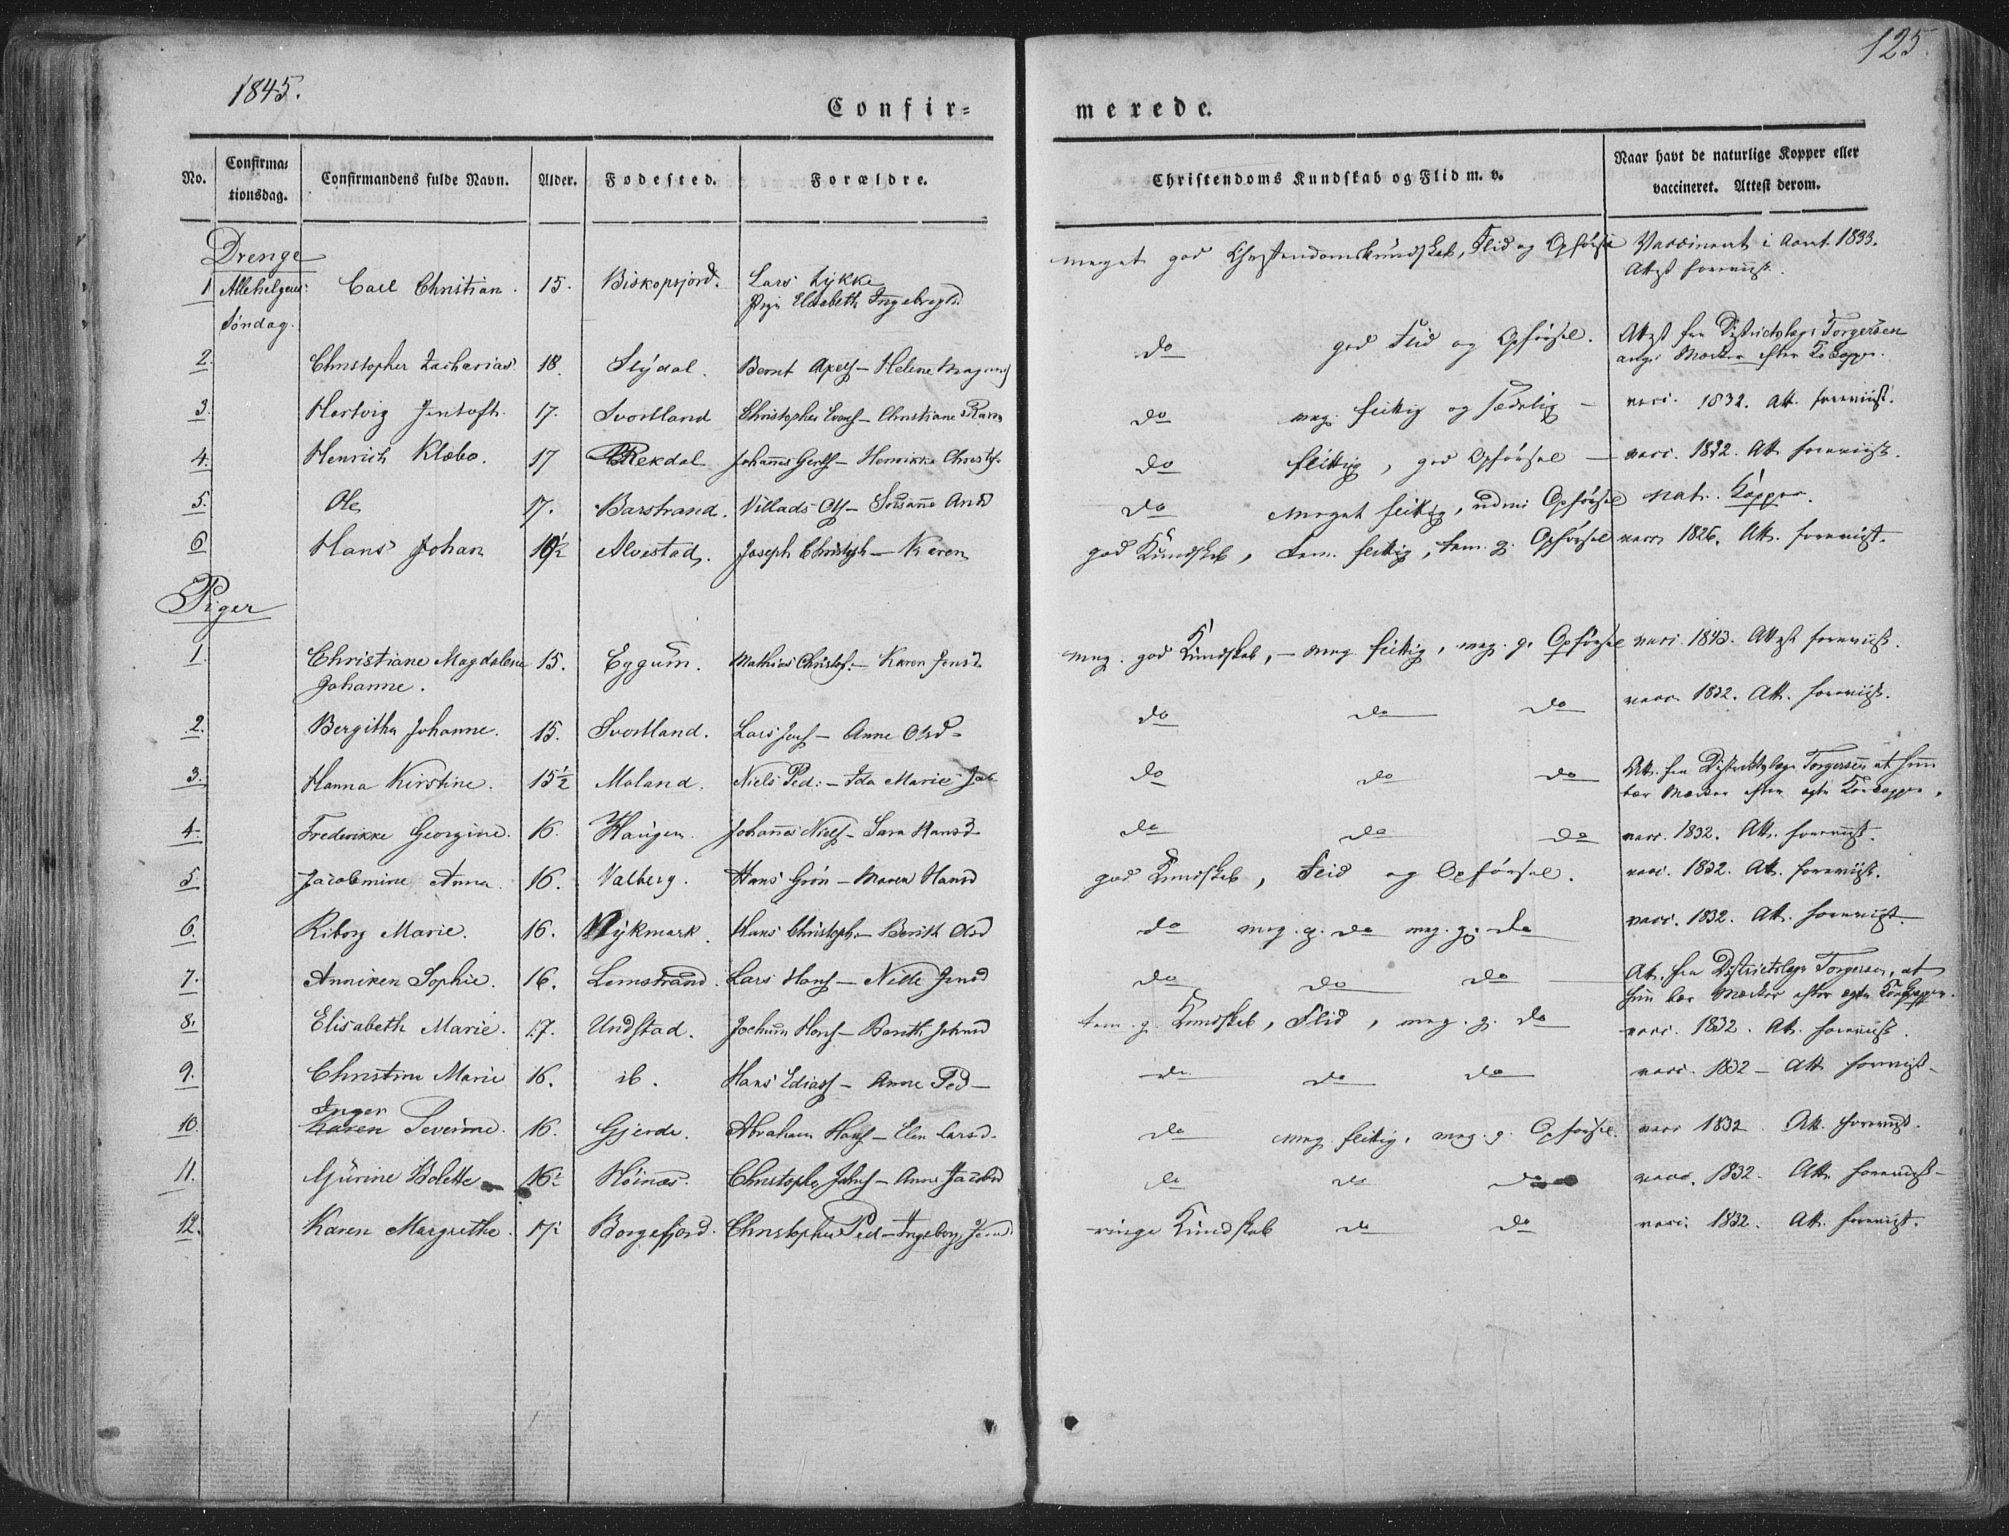 1845.
125.
Confir=
merede.
No.
Confirma=
tionsdag.
Confirmandens fulde Navn.
Alder.
Fødested.
Forældre.
Christendoms Kundskab og Flid m. v.
Naar havt de naturlige Kopper eller
vaccineret. Attest derom.
Drenge
1 Allehelgens Søndag. Carl Christian. 15. Biskopsjord. Lars Lykke Elisabeth meget god Christendomskundskab, Flid og Opførsel Vaccineret i Aaret 1833. Attest foreviist.
2. Christopher Zacharias 18. Slydal. Bernt Axels - Helene do god Flid og Opførsel. Attest fra Districtslæge Torgersen
3. Hertvig Jentoft. 17. Svortland Christopher - Christiane do meg. flittig og sædelig - vacc. 1832. Att. foreviist.
4. Henrich Klæbo. 17 Rekdal Johannes - Henrikke do flittig, god Opførsel - vacc. 1832. Att. foreviist.
5. Ole 17. Barstrand. Villads Ols - Susanne Andsd do meget flittig, Opførsel nat. Kopper.
6 Hans Johan Alvestad. Joseph Christoph - Karen god Kundskab, tem. flittig, tem. g. Opførsel vacc 1826. Att. foreviist.
Piger
1. Christiane Magdalene Johanne. 15. Eggum. Mathias Christof. - Karen Jensd. meg. god Kundskab, - meg. flittig, meg. g. Opførsel vacc. 1843. Attest foreviist.
2. Bergitha Johanne. 15. Svortland. Lars Jens - Anne Olsd - do do do vacc. 1832. Att. foreviist.
3. Hanna Kirstine. 15½ Moland. Niels Ped: - Ida Marie do do do Att. fra Districtslæge Torgersen at hun bær Mærker efter ægte Kokopper.
4. Frederikke Georgine. 16. Haugen. Johannes Niels - Sara Hansd do do do vacc. 1832. Att. foreviist.
5 Jacobmine Anna. 16. Valberg. Hans Grøn - Maren Hansd god Kundskab, Flid og Opførsel. vacc. 1832. Att. foreviist.
6. Riborg Marie. 16. Nykmark. Hans Christoph. - Berith Olsd do meg. g. do meg. g. do vacc. 1832. Att. foreviist
7. Anniken Sophie. 16. Lemstrand. Lars Hans - Nille Jensd do do do Att. fra Districtslæge Torgersen, at hun bær Mærker efter ægte Kokopper.
8. Elisabeth Marie. 17. Undstad. Jochum Hans - Berith Johnsd tem. g. Kundskab, Flid, meg. g. do vacc. 1832. Att. foreviist.
9. Christine Marie 16. ib. Hans Edias - Anne Ped - do do do vacc. 1832 - Att. foreviist -
10. Inger Karen Severine. 16. Gjerde. Abraham Hans - Elen Larsd. do meg. flittig, meg. g. Opførsel. vacc 1832 Att. foreviist.
11. Gjurine Bolette 16½ Høinæs. Christopher Johns - Anne Jacobsd do do do vacc. 1832. Att. foreviist -
12. Karen Margrethe. 17½ Borgefjord. Christopher Ped - Ingeborg ringe Kundskab do do vacc. 1832. Att. foreviist.